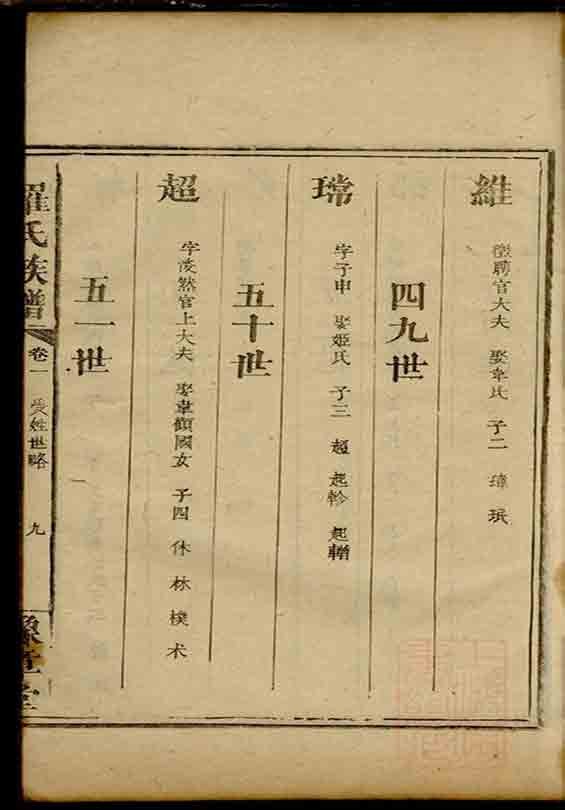 維 徵聘官大夫 娶韋氏 子二 瑋 珉
四九世
瑺 字子申 娶姬氏 子三 超 起軫 起轈
五十世
超 字凌然官上大夫 娶韋顧國女 子四 休 林 樸 术
五一世
羅氏族譜 卷一 受姓世略 九 豫章堂